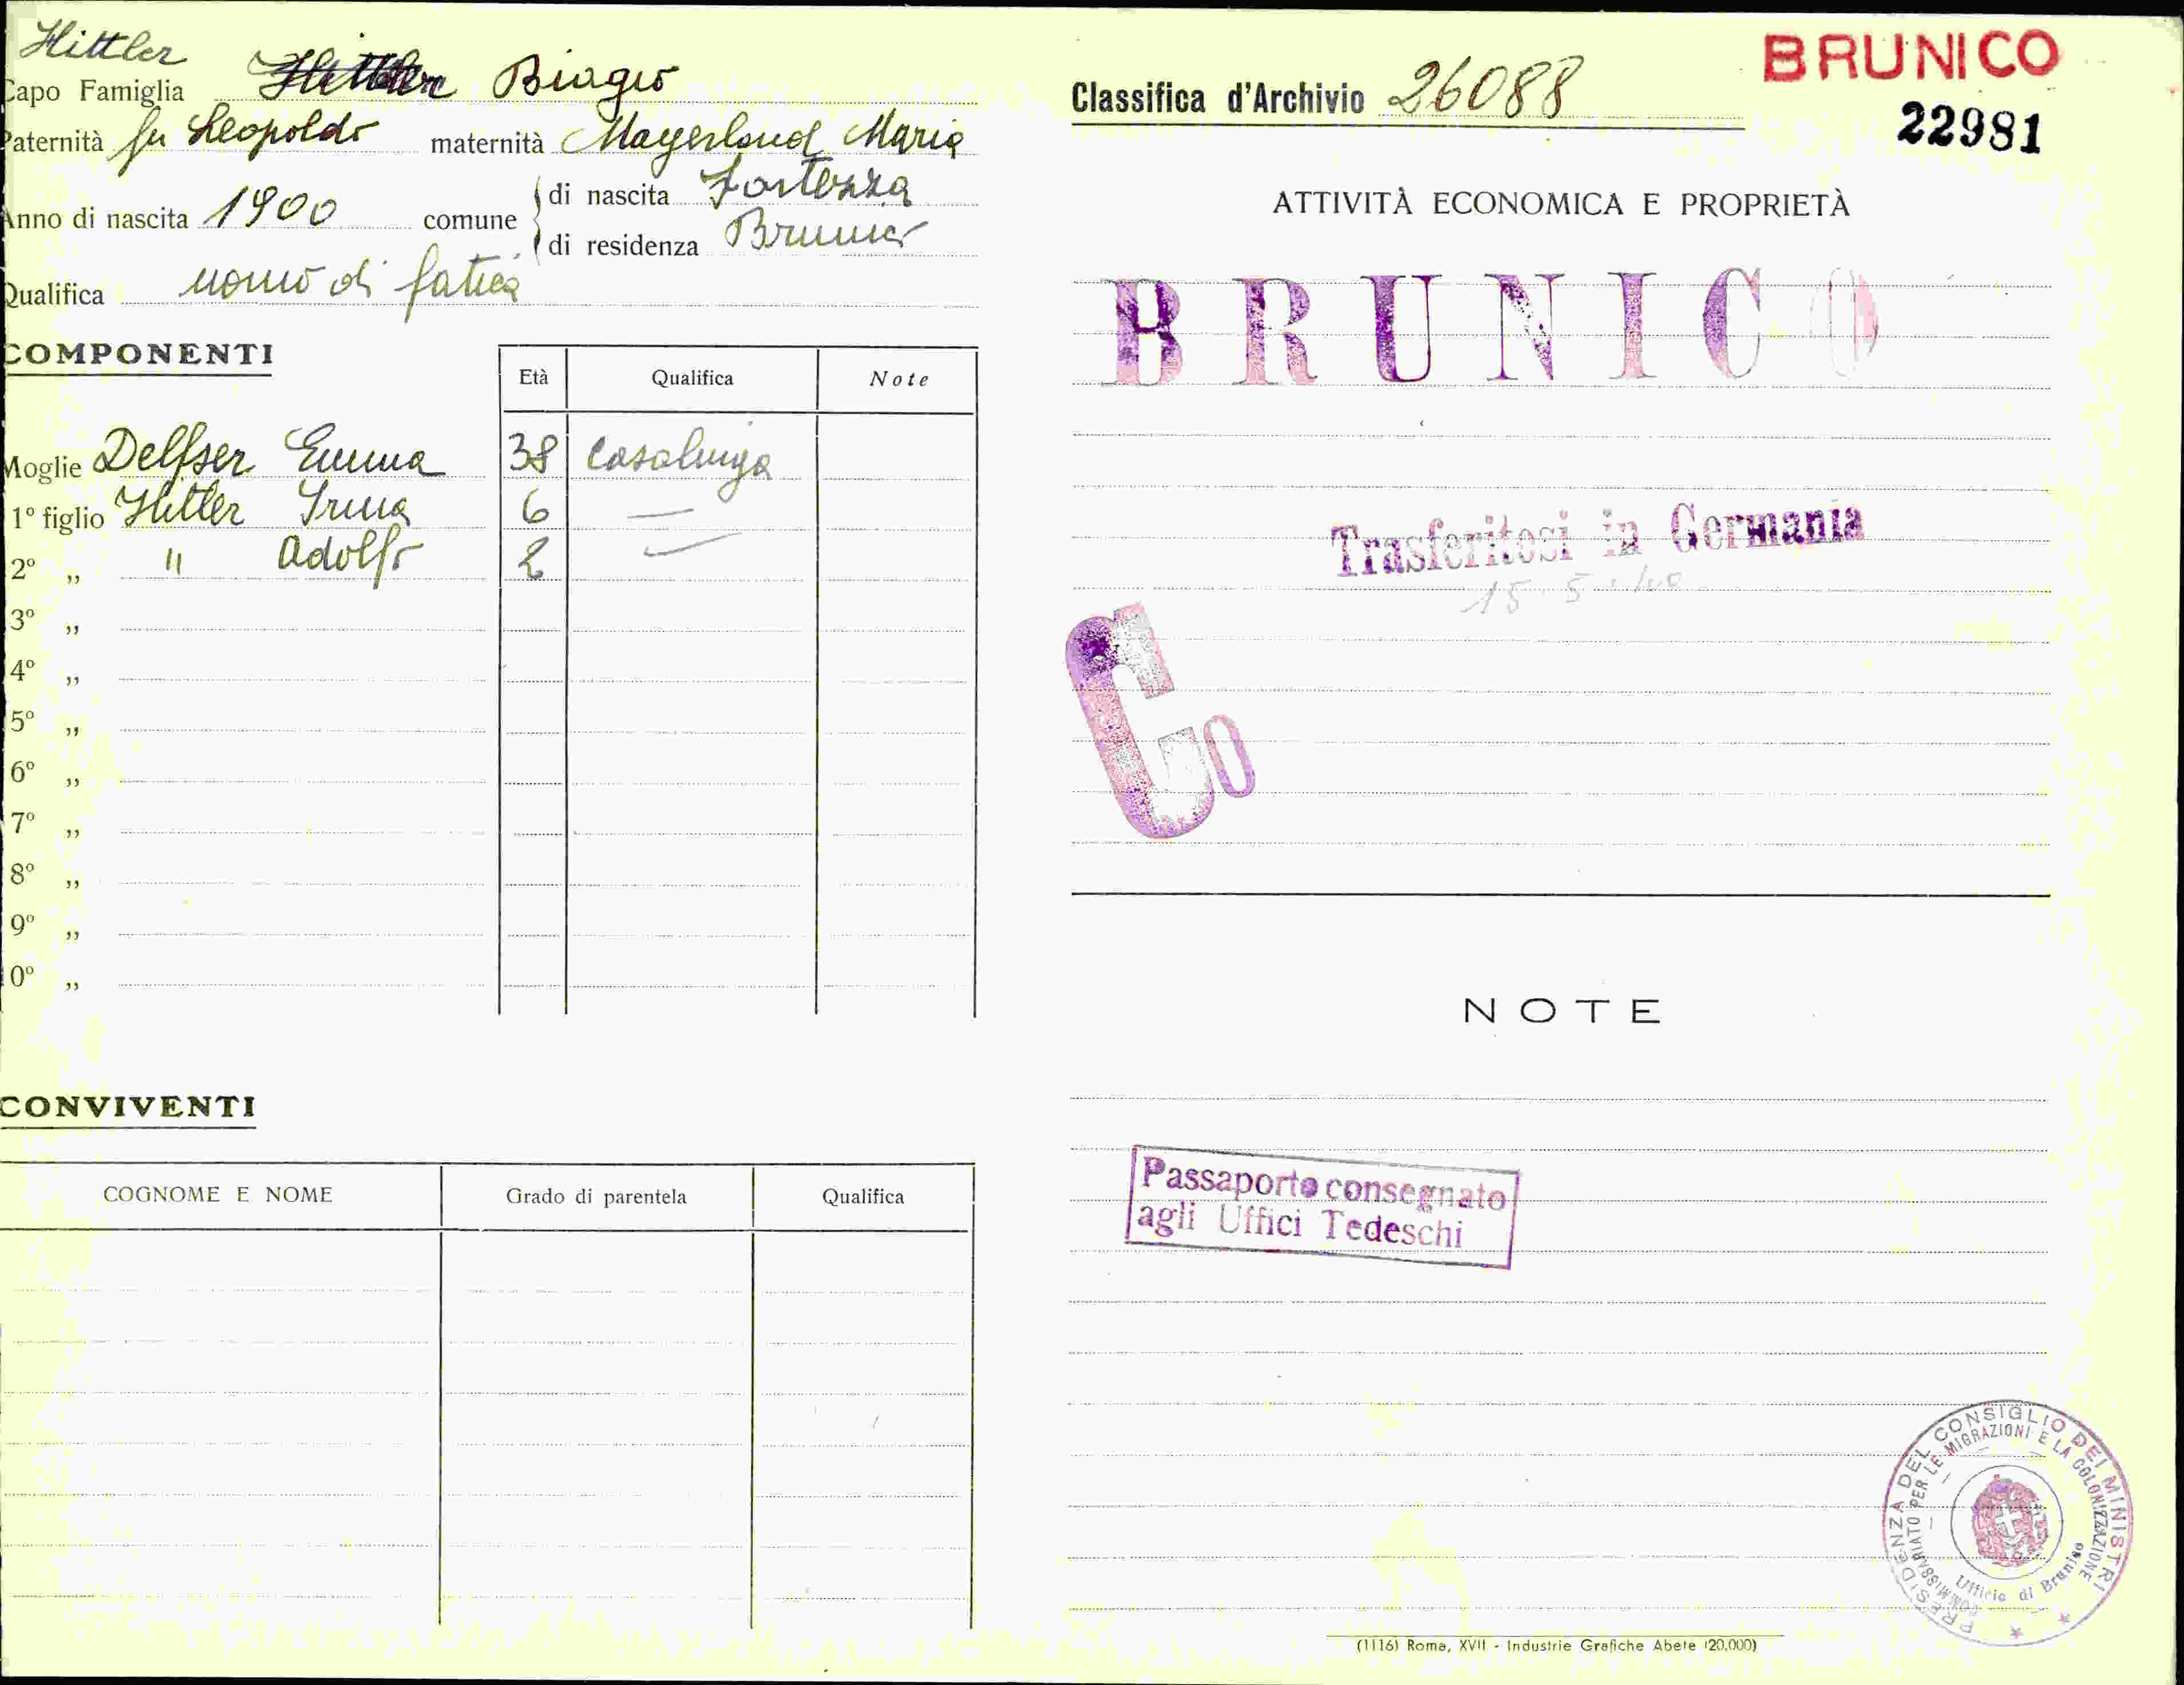 Hittler
Capo Famiglia Hittler Biagio
Paternità fu Leopoldo maternità Mayerland Maria
Anno di nascita 1900 comune di nascita Fortezza
di residenza Brunico
Qualifica uomo di fatica
COMPONENTI
Età Qualifica Note
Moglie Delfser Emma 38 Casalinga
1° figlio Hitler Irma 6 —
2° „ " Adolfo 2 —
3° „
4° „
5° „
6° „
7° „
8° „
9° „
0° „
CONVIVENTI
COGNOME E NOME Grado di parentela Qualifica
BRUNICO
Classifica d'Archivio 26088
22981
ATTIVITÀ ECONOMICA E PROPRIETÀ
BRUNICO
Trasferitosi in Germania
15 · 5 · 40
Co
NOTE
Passaporto consegnato
agli Uffici Tedeschi
PRESIDENZA DEL CONSIGLIO DEI MINISTRI
COMMISSARIATO PER LE MIGRAZIONI E LA COLONIZZAZIONE
Ufficio di Brunico
(1116) Roma, XVII - Industrie Grafiche Abete (20.000)